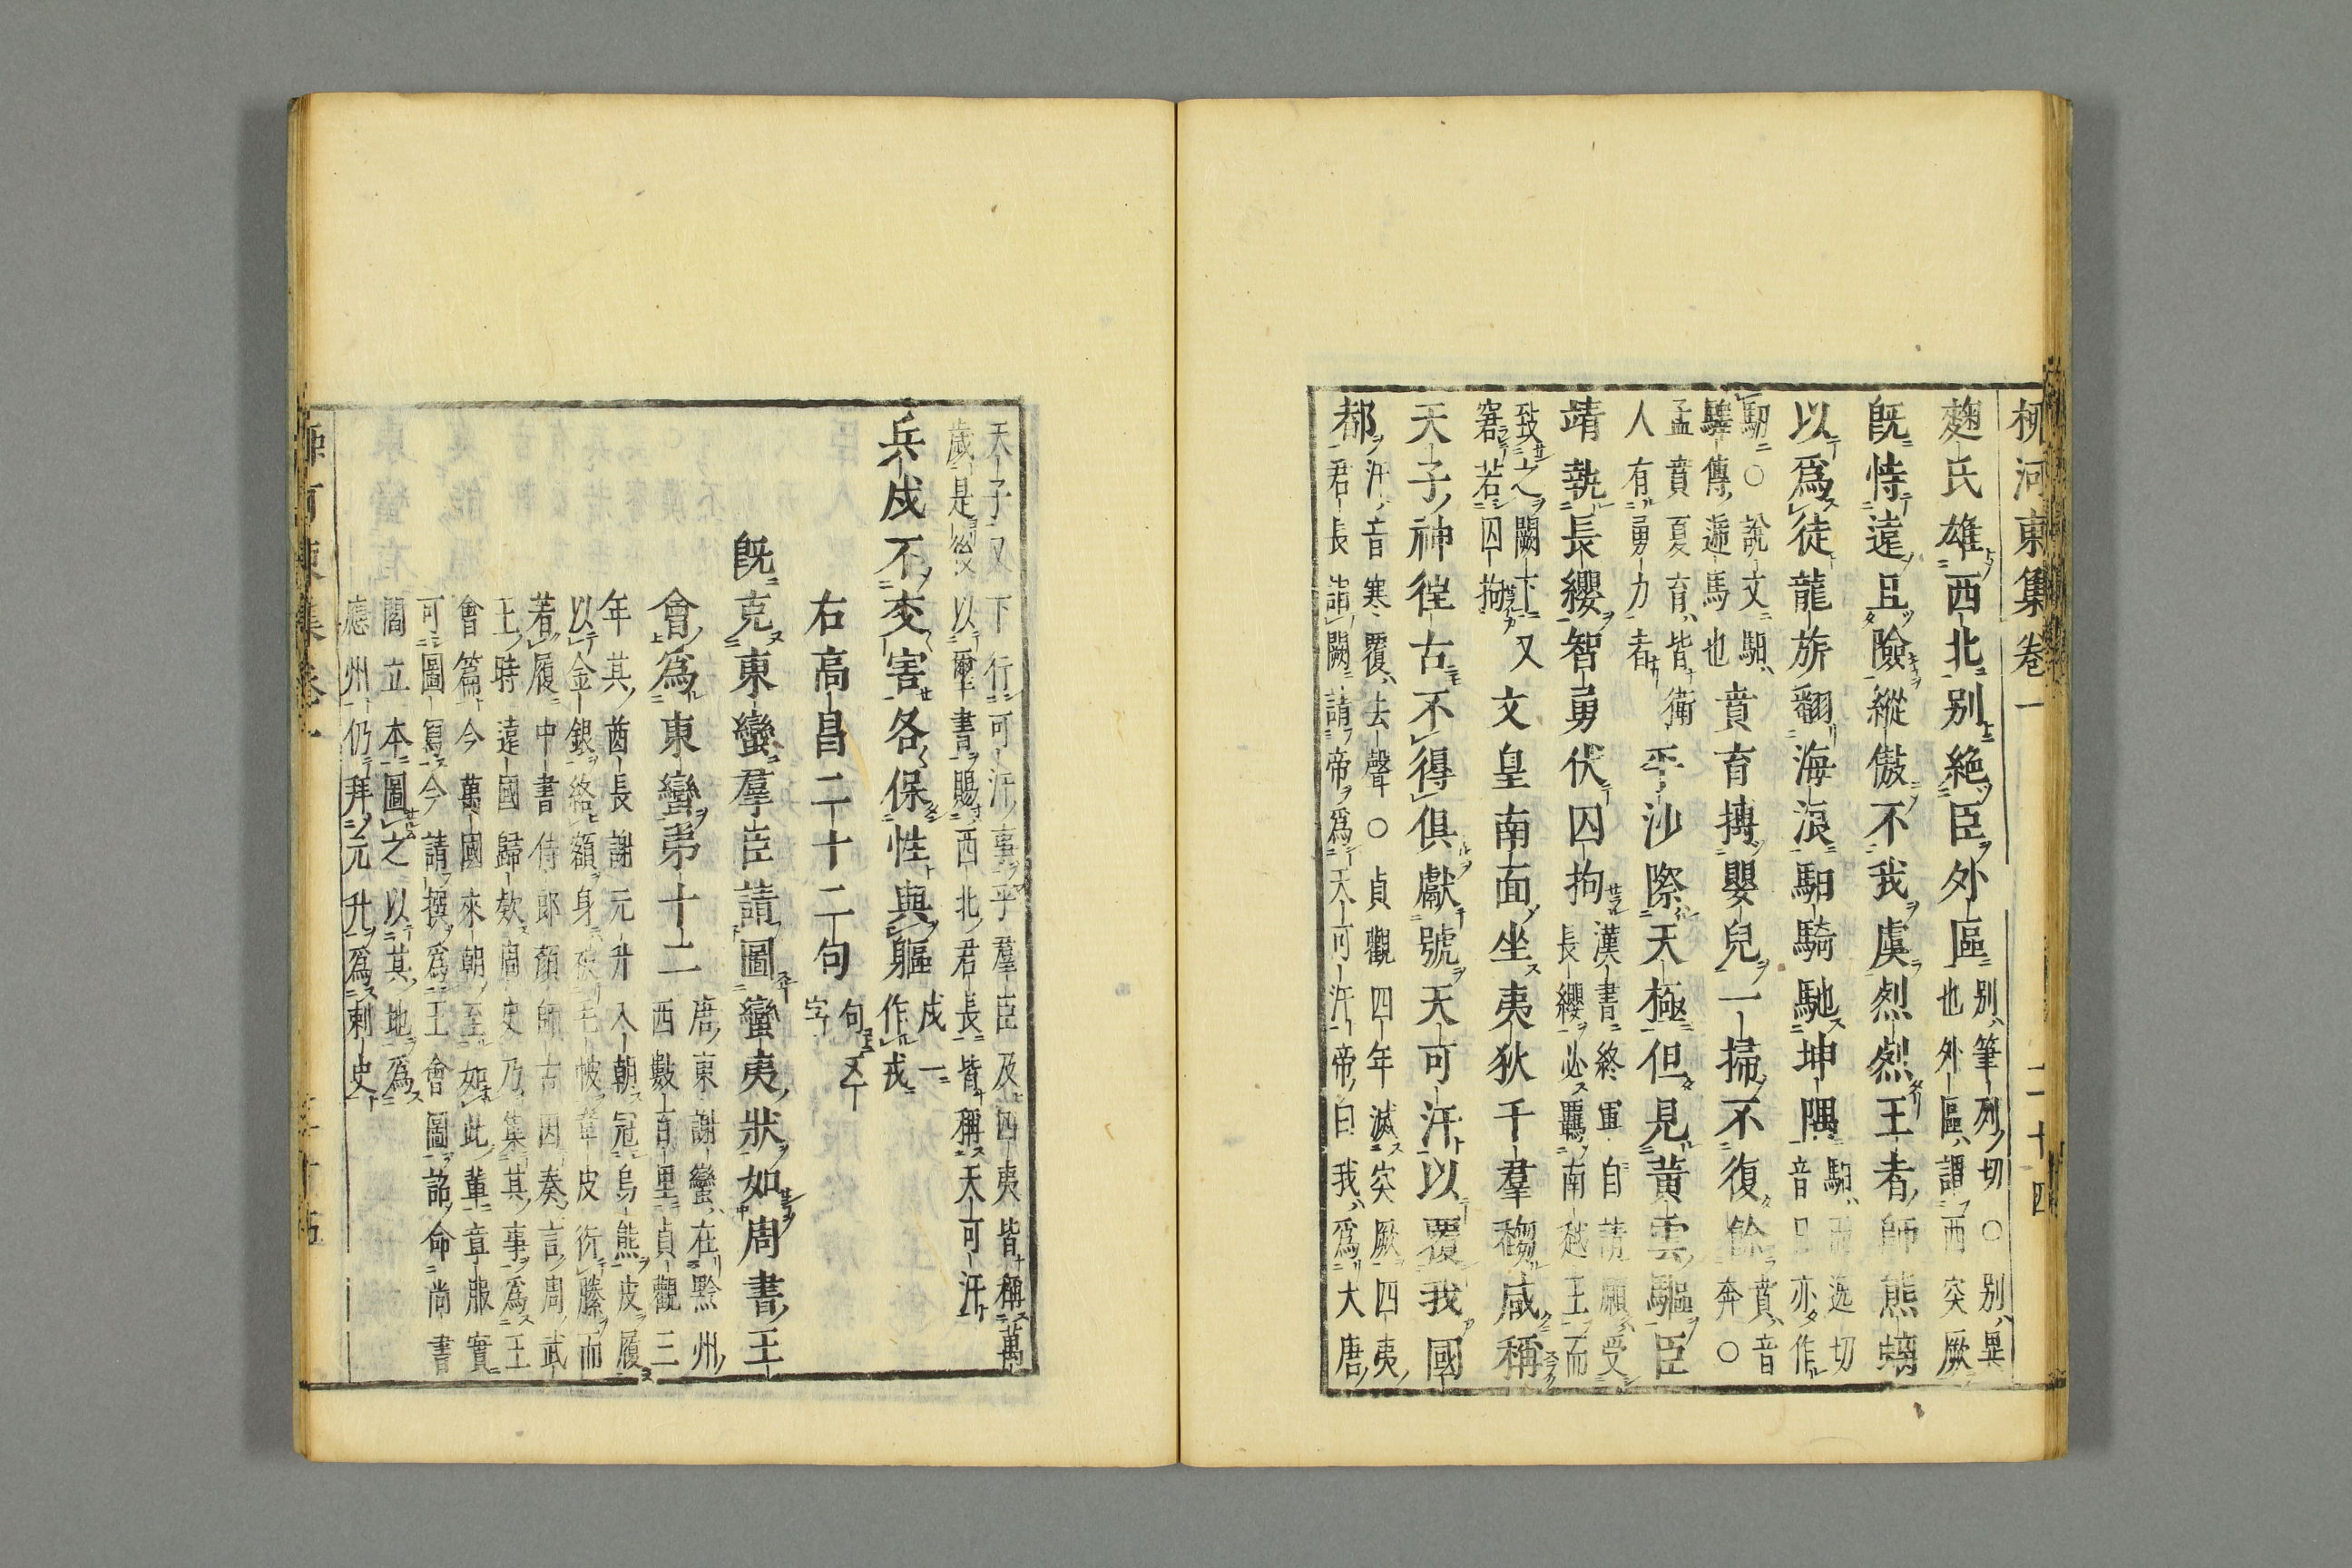 柳河東集卷一 二十四
麴氏雄西北別絶臣外區別筆列切○別異
也外區謂西突厥
既恃遠且險縱傲不我虞烈烈王者師熊螭
以爲徒龍旂翻海浪馹騎馳坤隅馹
音日亦作
馹○說文馹
驛傳遞馬也賁育搏嬰兒一掃不復餘賁音
奔○
孟賁夏育皆衛
人有勇力者平沙際天極但見黃雲驅臣
靖執長纓智勇伏囚拘漢書終軍自請願受
長纓必羈南越王而
致之闕下又
窘若囚拘文皇南面坐夷狄千羣趨咸稱
天子神徃古不得俱獻號天可汗以覆我國
都汗音寒覆去聲○貞觀四年滅突厥四夷
君長詣闕請帝爲天可汗帝曰我爲大唐
天子又下行可汗事乎羣臣及四夷皆稱萬
歲是後以璽書賜西北君長皆稱天可汗
兵戍不交害各保性與軀戍一
作戎
右高昌二十二句句又一
字
既克東蠻羣臣請圖蠻夷狀如周書王
會爲東蠻第十二唐東謝蠻在黔州
西數百里貞觀三
年其酋長謝元升入朝冠烏熊皮履
以金銀絡額身披毛帔韋皮行縢而
若履中書侍郎顏師古因奏言周武
王時遠國歸欵周史乃集其事爲王
會篇今萬國來朝至如此輩章服實
可圖寫今請撰爲王會圖詔命尚書
閻立本圖之以其地爲
應州仍拜元升爲刺史